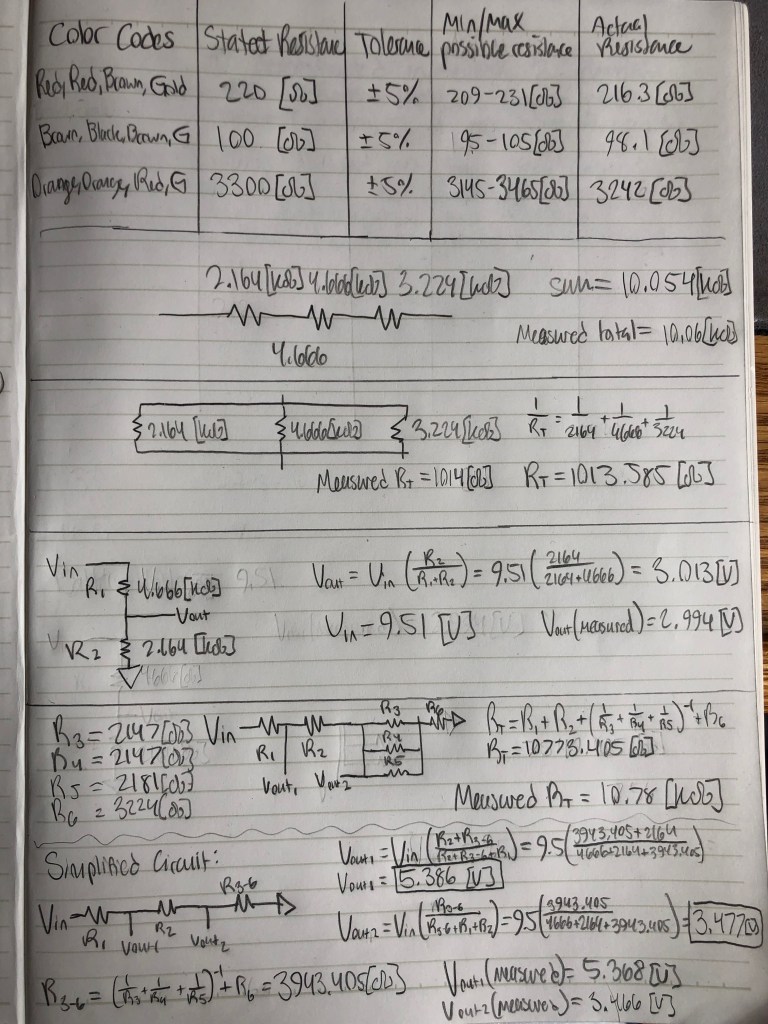 Color Codes | Stated Resistance | Tolerance | Min/Max possible resistance | Actual Resistance
Red, Red, Brown, Gold | 220 [Ω] | ±5% | 209-231[Ω] | 216.3[Ω]
Brown, Black, Brown, G | 100 [Ω] | ±5% | 95-105[Ω] | 98.1 [Ω]
Orange, Orange, Red, G | 3300[Ω] | ±5% | 3145-3465[Ω] | 3242[Ω]
2.164[kΩ] 4.666[kΩ] 3.224[kΩ] sum= 10.054[kΩ]
Measured total= 10.06[kΩ]
4.666
2.164 [kΩ] 4.666[kΩ] 3.224[kΩ] 1/RT = 1/2164 + 1/4666 + 1/3224
Measured RT = 1014[Ω] RT = 1013.585 [Ω]
Vin
R1 4.666[kΩ] Vout = Vin (R2/(R1+R2)) = 9.51(2164/(2164+4666)) = 3.013[V]
Vout
Vin = 9.51 [V] Vout(measured) = 2.994 [V]
R2 2.164 [kΩ]
R3 = 2147[Ω] Vin R1 R2 R3 R4 R5 R6 RT = R1 + R2 + (1/R3 + 1/R4 + 1/R5)^-1 + R6
R4 = 2147[Ω] RT = 10773.405 [Ω]
R5 = 2181[Ω] Vout1 Vout2
R6 = 3224[Ω] Measured RT = 10.78 [kΩ]
Simplified Circuit: Vout1 = Vin((R2+R3-6)/(R2+R3-6+R1)) = 9.5((3943.405+2164)/(4666+2164+3943.405))
Vout1 = 5.386 [V]
Vin R1 Vout1 R2 Vout2 R3-6
Vout2 = Vin(R3-6/(R3-6+R1+R2)) = 9.5(3943.405/(4666+2164+3943.405)) = 3.477[V]
R3-6 = (1/R3 + 1/R4 + 1/R5)^-1 + R6 = 3943.405[Ω] Vout1(measured) = 5.368 [V]
Vout2(measured) = 3.466 [V]